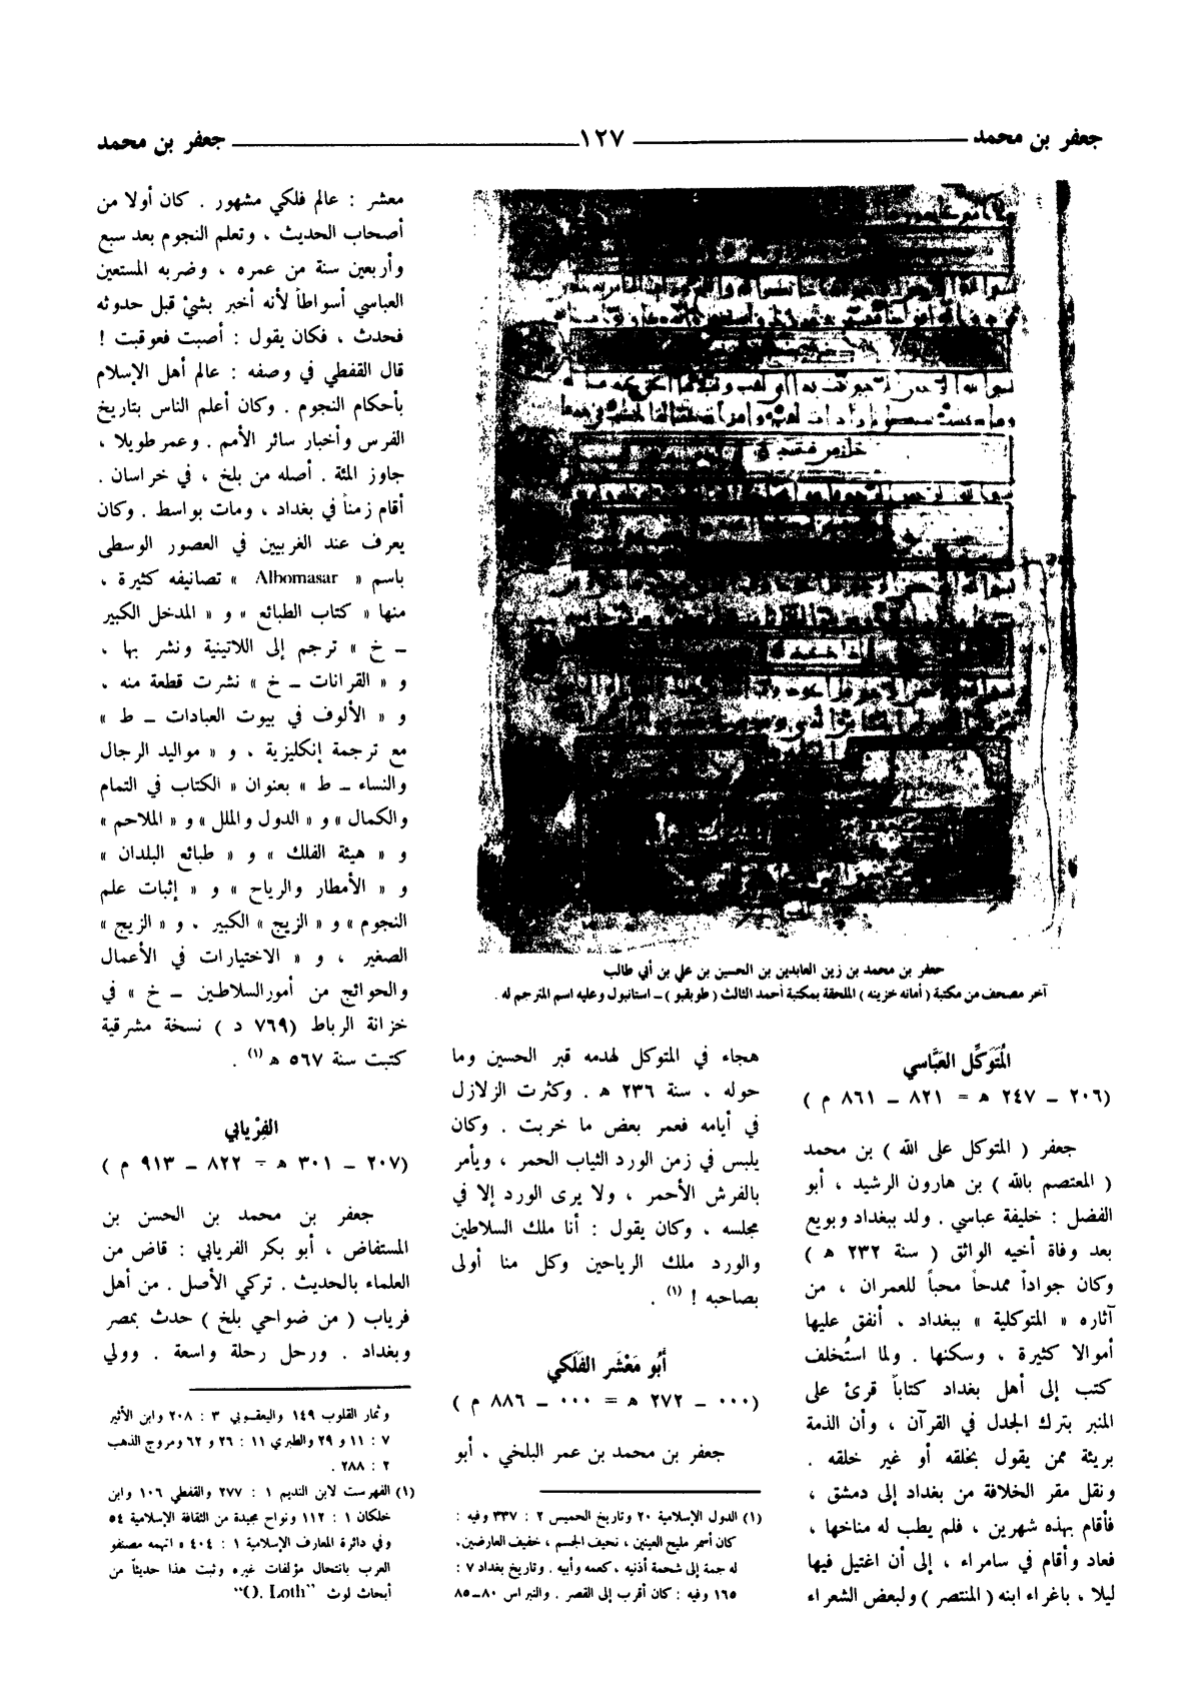 جعفر بن محمد
١٢٧
جعفر بن محمد
جعفر بن محمد بن زين العابدين بن الحسين بن علي بن أبي طالب
آخر مصحف من مكتبة ( أمانه خزينه ) الملحقة بمكتبة أحمد الثالث ( طوبقبو ) ــ استانبول وعليه اسم المترجم له .
المُتَوَكِّل العَبَّاسي
(٢٠٦ ــ ٢٤٧ ه = ٨٢١ ــ ٨٦١ م )
جعفر ( المتوكل على الله ) بن محمد
( المعتصم بالله ) بن هارون الرشيد ، أبو
الفضل : خليفة عباسي . ولد ببغداد وبويع
بعد وفاة أخيه الواثق ( سنة ٢٣٢ ه )
وكان جواداً ممدحاً محباً للعمران ، من
آثاره « المتوكلية » ببغداد ، أنفق عليها
أموالا كثيرة ، وسكنها . ولما استُخلف
كتب إلى أهل بغداد كتاباً قرئ على
المنبر بترك الجدل في القرآن ، وأن الذمة
بريئة ممن يقول بخلقه أو غير خلقه .
ونقل مقر الخلافة من بغداد إلى دمشق ،
فأقام بهذه شهرين ، فلم يطب له مناخها ،
فعاد وأقام في سامراء ، إلى أن اغتيل فيها
ليلا ، باغراء ابنه ( المنتصر ) ولبعض الشعراء
هجاء في المتوكل لهدمه قبر الحسين وما
حوله ، سنة ٢٣٦ ه . وكثرت الزلازل
في أيامه فعمر بعض ما خربت . وكان
يلبس في زمن الورد الثياب الحمر ، ويأمر
بالفرش الأحمر ، ولا يرى الورد إلا في
مجلسه ، وكان يقول : أنا ملك السلاطين
والورد ملك الرياحين وكل منا أولى
بصاحبه ! (١) .
أَبُو مَعْشَر الفَلَكي
(٠٠٠ ــ ٢٧٢ ه = ٠٠٠ ــ ٨٨٦ م )
جعفر بن محمد بن عمر البلخي ، أبو
(١) الدول الإسلامية ٢٠ وتاريخ الخميس ٢ : ٣٣٧ وفيه :
كان أسمر مليح العينين ، نحيف الجسم ، خفيف العارضين،
له جمة إلى شحمة أذنيه ، كعمه وأبيه . وتاريخ بغداد ٧ :
١٦٥ وفيه : كان أقرب إلى القصر . والنبراس ٨٠ــ٨٥
معشر : عالم فلكي مشهور . كان أولا من
أصحاب الحديث ، وتعلم النجوم بعد سبع
وأربعين سنة من عمره ، وضربه المستعين
العباسي أسواطاً لأنه أخبر بشيْ قبل حدوثه
فحدث ، فكان يقول : أصبت فعوقبت !
قال القفطي في وصفه : عالم أهل الإسلام
بأحكام النجوم . وكان أعلم الناس بتاريخ
الفرس وأخبار سائر الأمم . وعمر طويلا ،
جاوز المئة . أصله من بلخ ، في خراسان .
أقام زمناً في بغداد ، ومات بواسط . وكان
يعرف عند الغربيين في العصور الوسطى
باسم « Albomasar » تصانيفه كثيرة ،
منها « كتاب الطبائع » و « المدخل الكبير
ــ خ » ترجم إلى اللاتينية ونشر بها ،
و « القرانات ــ خ » نشرت قطعة منه ،
و « الألوف في بيوت العبادات ــ ط »
مع ترجمة إنكليزية ، و « مواليد الرجال
والنساء ــ ط » بعنوان « الكتاب في التمام
والكمال » و « الدول والملل » و « الملاحم »
و « هيئة الفلك » و « طبائع البلدان »
و « الأمطار والرياح » و « إثبات علم
النجوم » و « الزيج » الكبير ، و « الزيج »
الصغير ، و « الاختيارات في الأعمال
والحوائج من أمور السلاطين ــ خ » في
خزانة الرباط (٧٦٩ د ) نسخة مشرقية
كتبت سنة ٥٦٧ ه (١) .
الفِرْيابي
(٢٠٧ ــ ٣٠١ ه = ٨٢٢ ــ ٩١٣ م )
جعفر بن محمد بن الحسن بن
المستفاض ، أبو بكر الفريابي : قاض من
العلماء بالحديث . تركي الأصل . من أهل
فرياب ( من ضواحي بلخ ) حدث بمصر
وبغداد . ورحل رحلة واسعة . وولي
وثمار القلوب ١٤٩ واليعقوبي ٣ : ٢٠٨ وابن الأثير
٧ : ١١ و ٢٩ والطبري ١١ : ٢٦ و ٦٢ ومروج الذهب
٢ : ٢٨٨ .
(١) الفهرست لابن النديم ١ : ٢٧٧ والقفطي ١٠٦ وابن
خلكان ١ : ١١٢ ونواح مجيدة من الثقافة الإسلامية ٥٤
وفي دائرة المعارف الإسلامية ١ : ٤٠٤ « اتهمه مصنفو
العرب بانتحال مؤلفات غيره وثبت هذا حديثاً من
أبحاث لوث "O. Loth"